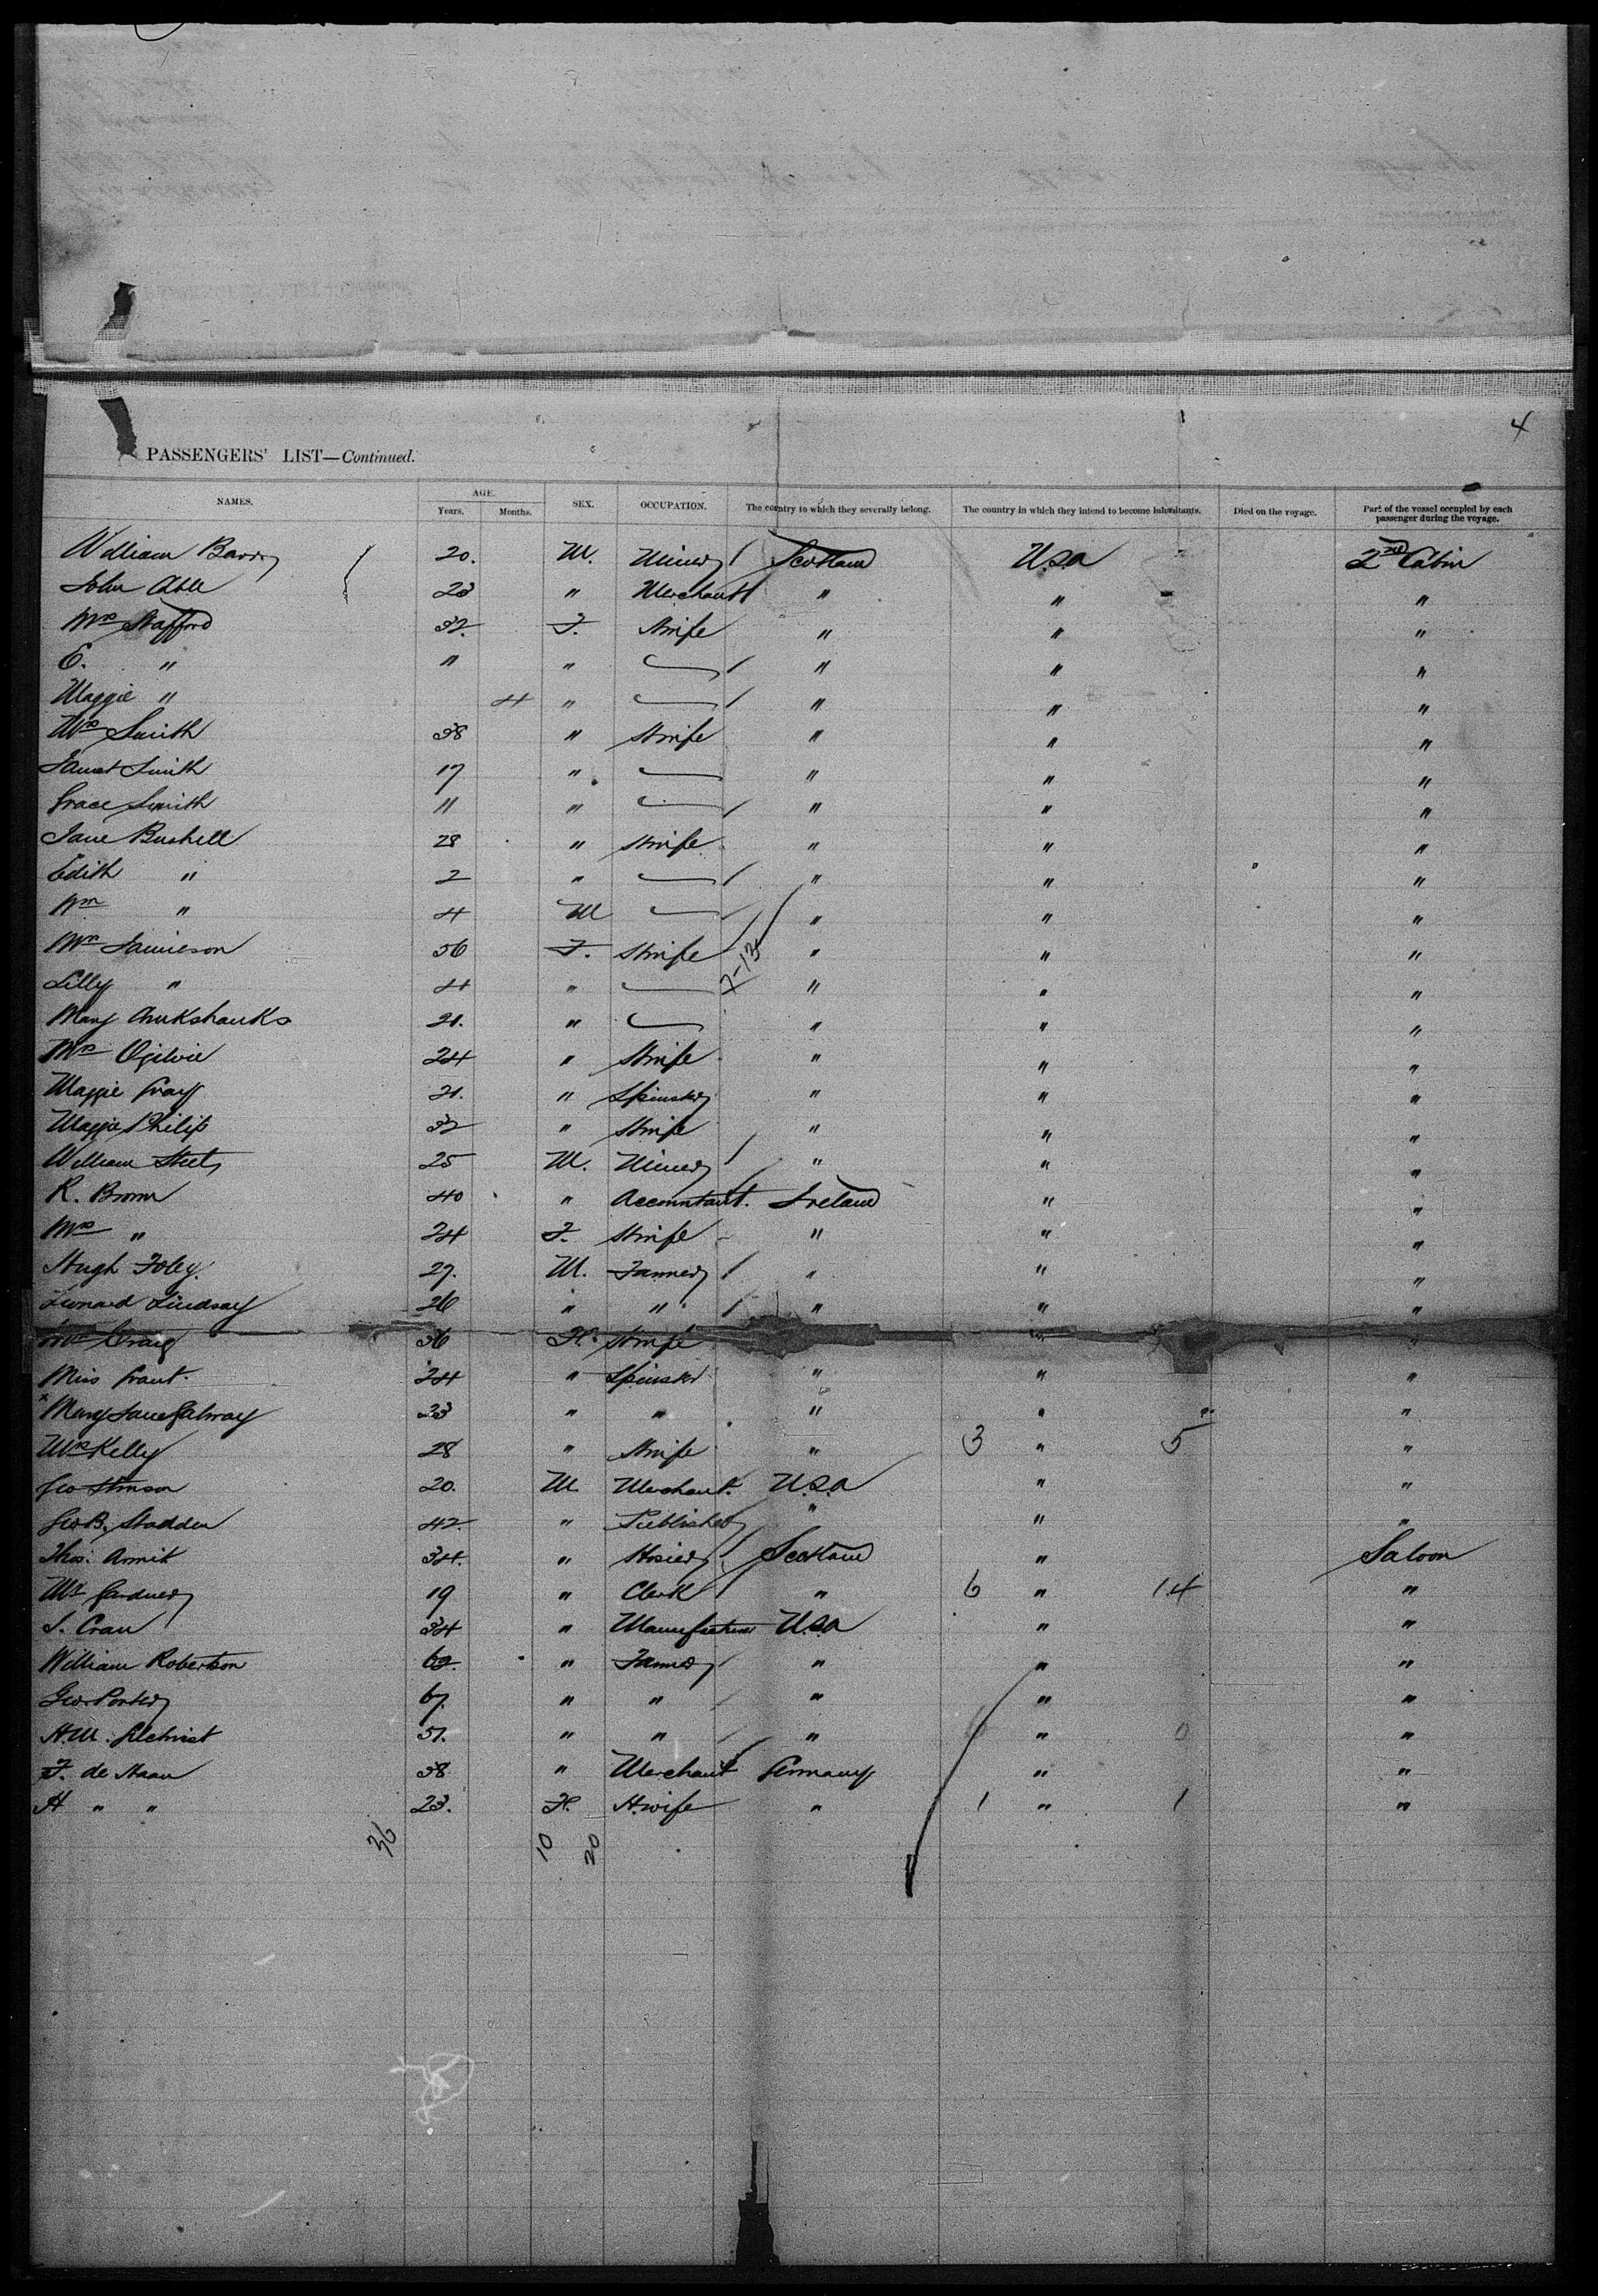 4
PASSENGERS' LIST—Continued.
NAMES. AGE. Years. Months. SEX. OCCUPATION. The country to which they severally belong. The country in which they intend to become inhabitants. Died on the voyage. Part of the vessel occupied by each passenger during the voyage.
William Barry 20. M. Miner Scotland U.S.A 2nd Cabin
John Able 23 " Merchant " " "
Mrs Stafford 32. F. Hwife " " "
E. " 11 " " " "
Maggie " 4 " " " "
Mrs Smith 38 " Hwife " " "
Janet Smith 17 " " " "
Grace Smith 11 " " " "
Jane Bushell 28 " Hwife " " "
Edith " 2 " " " "
Wm " 4 M " " "
Mrs Jamieson 56 F. Hwife " " "
Lilly " 4 " " " "
Mary Cruikshanks 21. " " " "
Mrs Ogilvie 24 " Hwife " " "
Maggie Gray 21. " Spinster " " "
Maggie Philip 32 " Hwife " " "
William Steel 25 M. Miner " " "
R. Brown 40 " Accountant. Ireland " "
Mrs " 24 F. Hwife " " "
Hugh Foley. 27. M. Farmer " " "
Leonard Lindsay 26 " " " " "
Mrs Craig 36 F. Hwife " "
Miss Grant. 24 " Spinster " " "
x Mary Jane Galway 23 " " " " "
Mrs Kelly 28 " Hwife " 3 " 5 "
Geo Stimson 20. M Merchant. U.S.A " "
Geo B. Stadden 42. " Publisher " " "
Thos. Armit 34. " Hosier Scotland " Saloon
Mr Gardner 19 " Clerk " 6 " 14 "
J. Cran 34 " Manufacturer U.S.A " "
William Robertson 62. " Farmer " " "
Geo. Porter 67. " " " " "
H.M. Gilchrist 51. " " " " 0 "
F. de Haan 38 " Merchant Germany " "
H " " 23. F. H.wife " 1 " 1 "
36 10 20